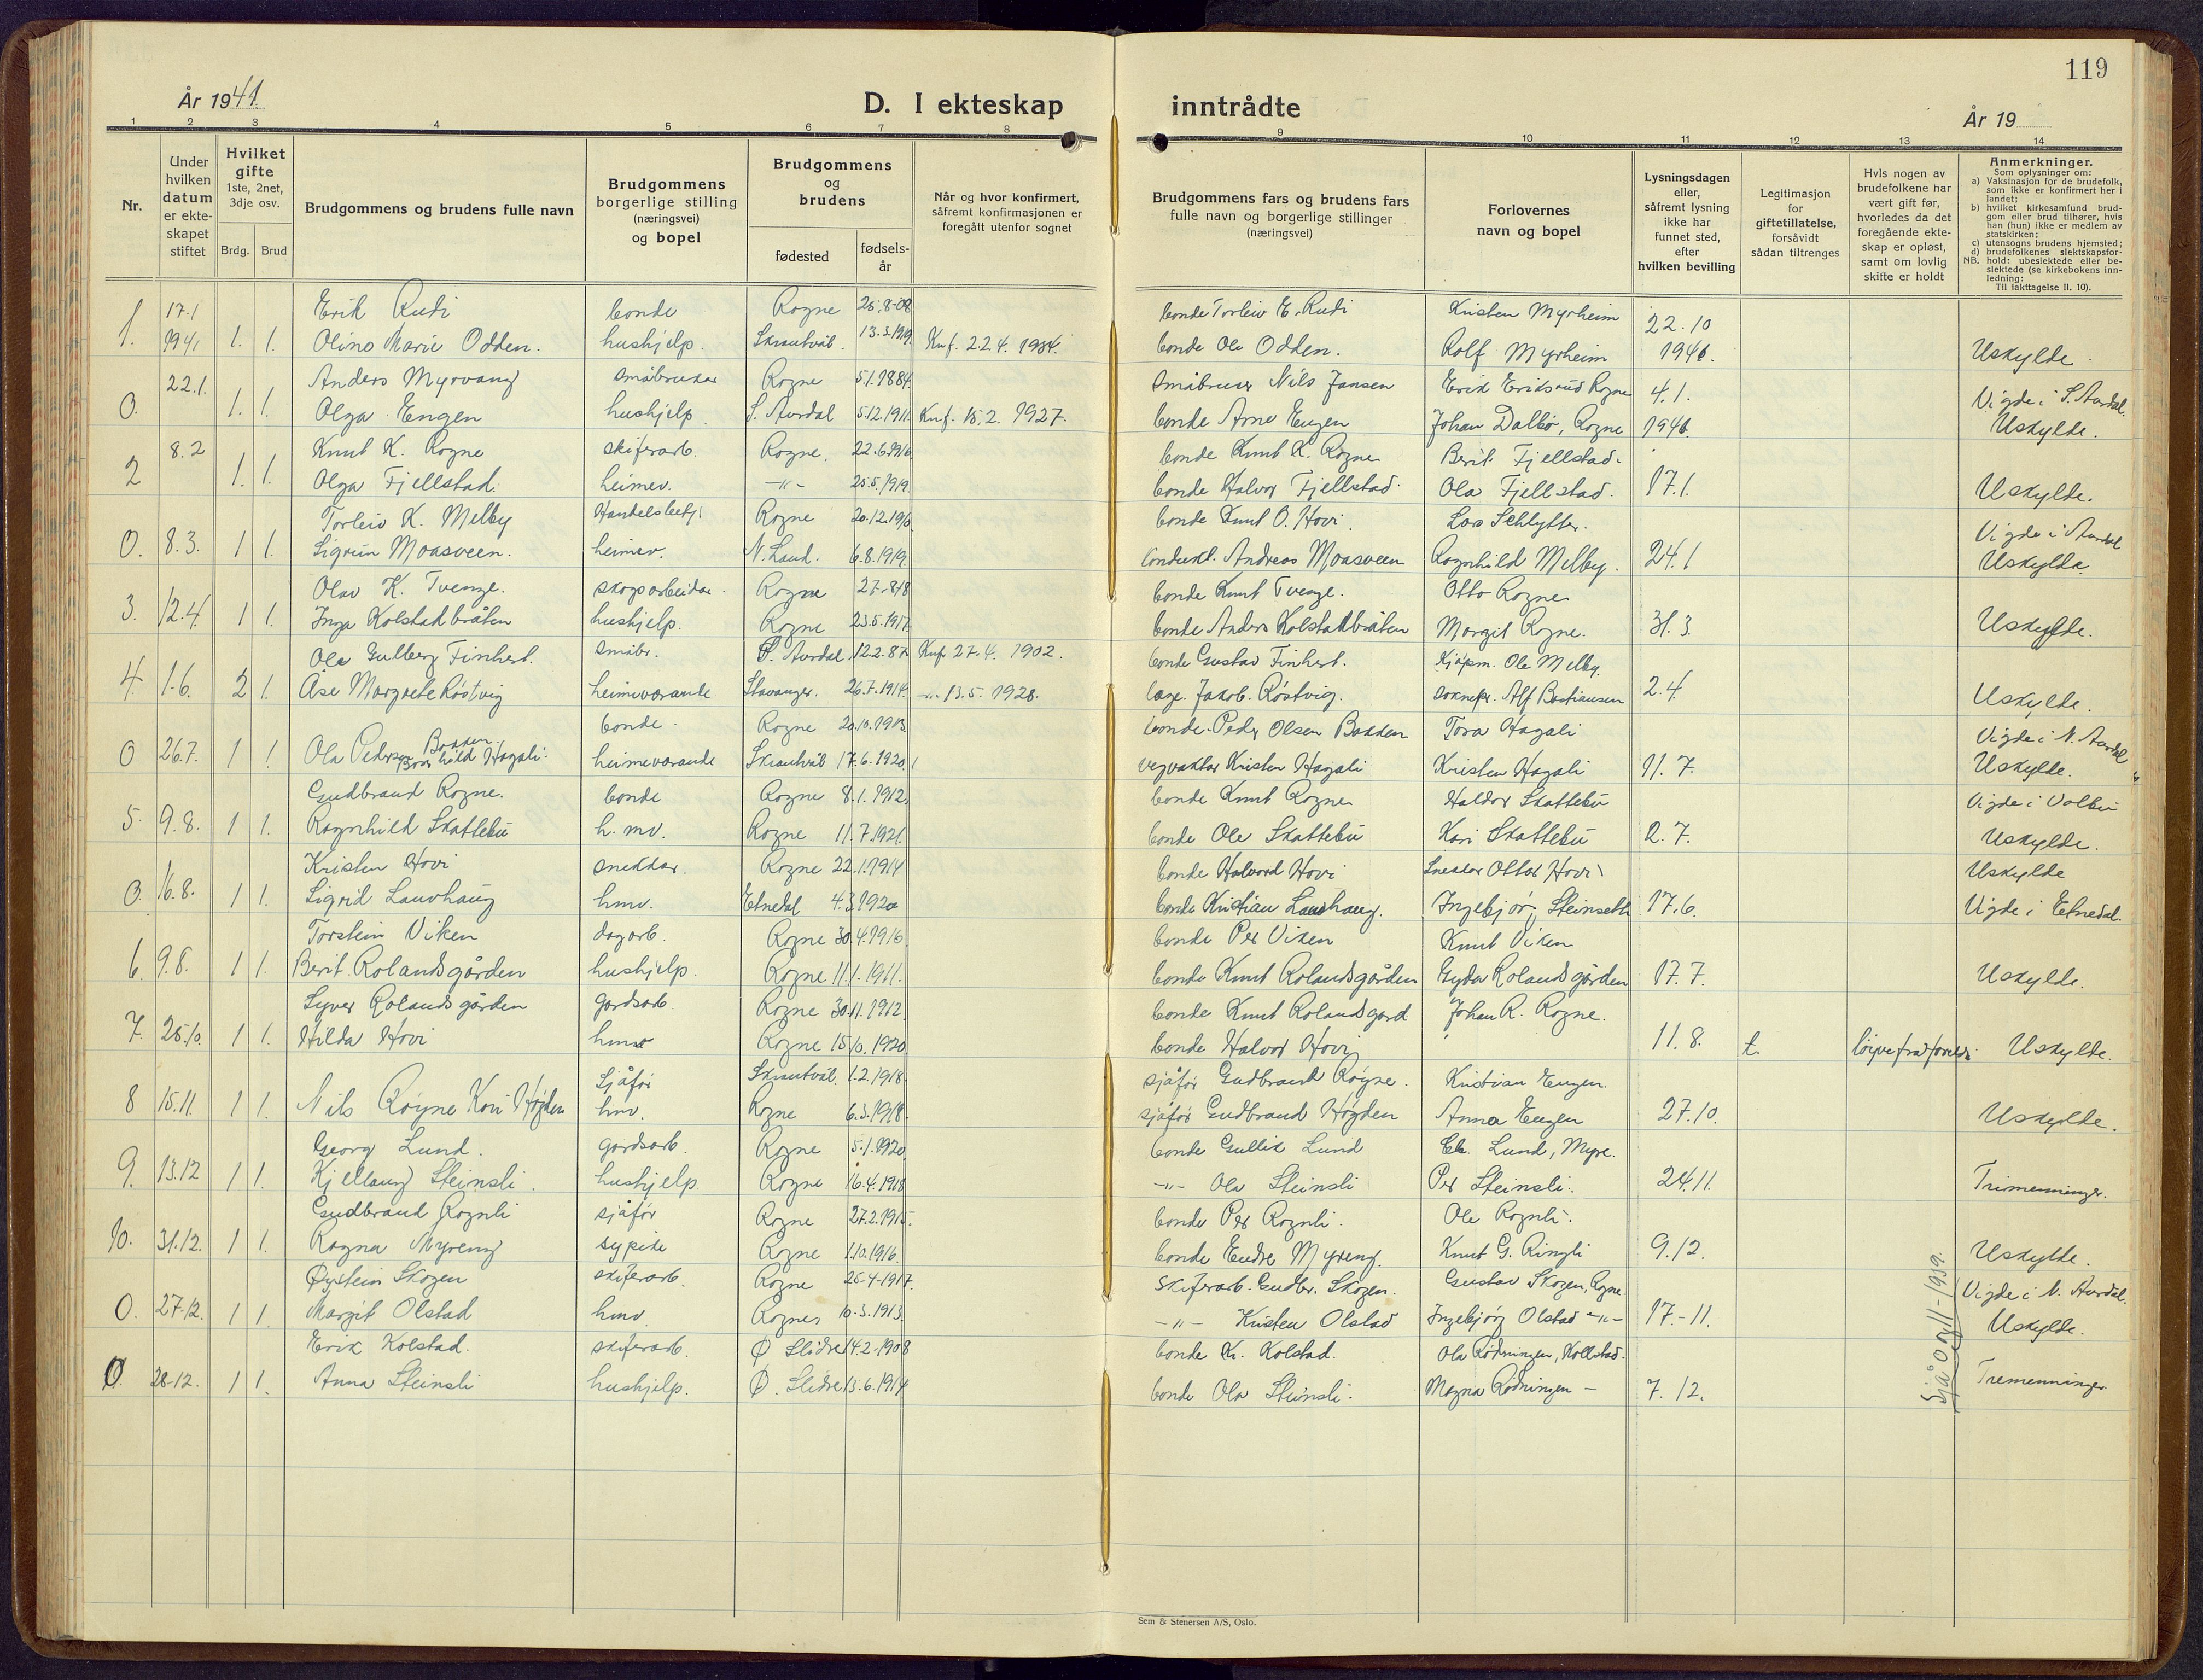 119
År 1941.
D. I ekteskap inntrådte
År 19
1 2 3 4 5 6 7 8 9 10 11 12 13 14
Nr.
Under hvilken datum er ekteskapet stiftet
Hvilket gifte 1ste, 2net, 3dje osv.
Brdg. Brud
Brudgommens og brudens fulle navn
Brudgommens borgerlige stilling (næringsvei) og bopel
Brudgommens og brudens
fødested
fødsels-år
Når og hvor konfirmert, såfremt konfirmasjonen er foregått utenfor sognet
Brudgommens fars og brudens fars fulle navn og borgerlige stillinger (næringsvei)
Forlovernes navn og bopel
Lysningsdagen eller, såfremt lysning ikke har funnet sted, efter hvilken bevilling
Legitimasjon for giftetillatelse, forsåvidt sådan tiltrenges
Hvis nogen av brudefolkene har vært gift før, hvorledes da det foregående ekteskap er opløst, samt om lovlig skifte er holdt
Anmerkninger.
Som oplysninger om:
a) Vaksinasjon for de brudefolk, som ikke er konfirmert her i landet;
b) hvilket kirkesamfund brudgom eller brud tilhører, hvis han (hun) ikke er medlem av statskirken;
c) utensogns brudens hjemsted;
d) brudefolkenes slektskapsforhold: ubeslektede eller beslektede (se kirkebokens innledning:
NB.
Til iakttagelse II. 10).
17.1 Erik Rudi bonde Rogne 25.8-08 bonde Torleiv E. Rudi Kristen Myrheim 22.10
1. 1941 1. 1. Olino Marie Odden. hushjelp. Skrautvål. 13.3.1919. Knf. 22.4. 1934. bonde Ole Odden. Rolf Myrheim 1940. Uskylde.
22.1. Anders Myrvang småbruker Rogne 5.1.1884 småbruker Nils Jansen Erik Eriksrud Rogne 4.1. Vigde i S. Aurdal.
0. 1. 1. Olga Engen hushjelp. S. Aurdal 5.12.1911. Knf. 15.2. 1927. bonde Arne Engen Johan Dalbø, Rogne 1941. Uskylde.
8.2 Knut K. Rogne skiferarb. Rogne. 22.6.1916 bonde Knut K. Rogne Berit Fjellstad.
2 1. 1. Olga Fjellstad. heimev. -"- 25.5.1919. bonde Halvor Fjellstad. Ola Fjellstad. 17.1. Uskylde.
Torleiv K. Melby Handelsbetj. Rogne 20.12.1910 bonde Knut O. Hovi. Lars Schlytter. Vigde i Aurdal
0. 8.3. 1 1. Sigrun Moasveen. heimev. N. Land. 6.8.1919. Andreas Moasveen Ragnhild Melby. 24.1 Uskylde.
Olav K. Tvenge. skogarbeidar. Rogne 27.8.18 bonde Knut Tvenge. Otto Rogne
3. 12.4 1 1. Inga Kolstadbråten hushjelp. Rogne 23.5.1917. bonde Anders Kolstadbråten Margit Rogne. 31.3. Uskylde.
Ole Gulberg Finhert. småbr. S. Aurdal 12.2.87. Knf. 27.4. 1902. bonde Gustav Finhert. Kjøpm. Ole Melby.
4. 1.6. 2 1. Åse Margrete Röstvig heimeverande Stavanger. 26.7.1914. -"- 13.5. 1928. læge. Jakob. Röstvig. soknepr. Alf Bastiansen 2.4. Uskylde.
bonde. Rogne 20.10.1913. bonde. Peder Olsen Bakken Tora Hagali Vigde i N. Aurdal
0 26.7. 1 1. Ola Pedersen Bakken Hagali. heimeverande Skrautvål 17.6.1920. vegvaktar Kristen Hagali Kristen Hagali 11.7. Uskylde.
Gudbrand Rogne. bonde Rogne 8.1.1912. bonde Knut Rogne Haldor Skattebu Vigde i Volbu
5. 9.8. 1 1. Ragnhild Skattebu h.mv. Rogne 11.7.1921. bonde Ole Skattebu Kari Skattebu 2.7. Uskylde.
Kristen Hovi snekkar. Rogne 22.1.1914 bonde Halvord Hovi Snekkar Ottar Hovi Uskylde
0. 16.8. 1 1. Sigrid Lauvhaug hmv. Etnedal 4.3.1920 bonde Kristian Lauvhaug. Ingebjør Steinsett 17.6. Vigde i Etnedal.
Torstein Viken dagarb. Rogne 30.4.1916. bonde Per Viken Knut Viken
6. 9.8. 1 1. Berit. Rolandsgården hushjelp. Rogne 11.1.1911. bonde Knut Rolandsgården Gyda Rolandsgården 17.7. Uskylde.
Syver Rolandsgården gardsarb. Rogne 30.11.1912. bonde Knut Rolandsgard Johan R. Rogne.
7. 25.10. 1 1. Hilda Hovi hmv. Rogne 15.10.1920 bonde Halvor Hovi 11.8. t. løyve frå foreldr. Uskylde.
Sjåför Skrautvål. 1.2.1918. sjåför Gudbrand Röyne. Kristian Engen.
8 15.11. 1 1. Nils Röyne Kari Högden hmv. Rogne 6.3.1918. sjåför Gudbrand Högden Anna Engen 27.10. Uskylde.
Georg Lund. gardsarb. Rogne 5.1.1920 bonde Gullik Lund Ek. Lund, Myre.
9. 13.12 1 1. Kjellaug Steinsli. hushjelp. Rogne 16.4.1918 -"- Ola Steinsli Per Steinsli. 24.11. Trimenninger.
Gudbrand Rognli sjåför Rogne 27.2.1915. bonde Per Rognli. Ole Rognli.
10. 31.12. 1 1. Ragna Myreng sypike Rogne 1.10.1916. bonde Endre Myreng. Knut G. Ringli 9.12. Uskylde.
Øystein Skogen skiferarb. Rogne 25-4-1917. Skiferarb. Gudbr. Skogen. Gustav Skogen, Rogne. Vigde i N. Aurdal.
0. 27.12. 1 1. Margit Olstad hmv. Rogne 10.3.1913. -"- Kristen Olstad Ingebjørg Olstad -"- 17.-11. Uskylde.
Erik Kolstad. skiferarb. Ø Slidre 14.2-1908 bonde Kr. Kolstad. Ola Rödningen, Kollstad.
0. 28-12. 1 1. Anna Steinsli hushjelp. Ø. Slidre 13.6.1914 bonde Ola Steinsli. Magna Rödningen - 7.12. Tremenninger.
Sjå 0 og 11-1939.
Sem & Stenersen A/S, Oslo.